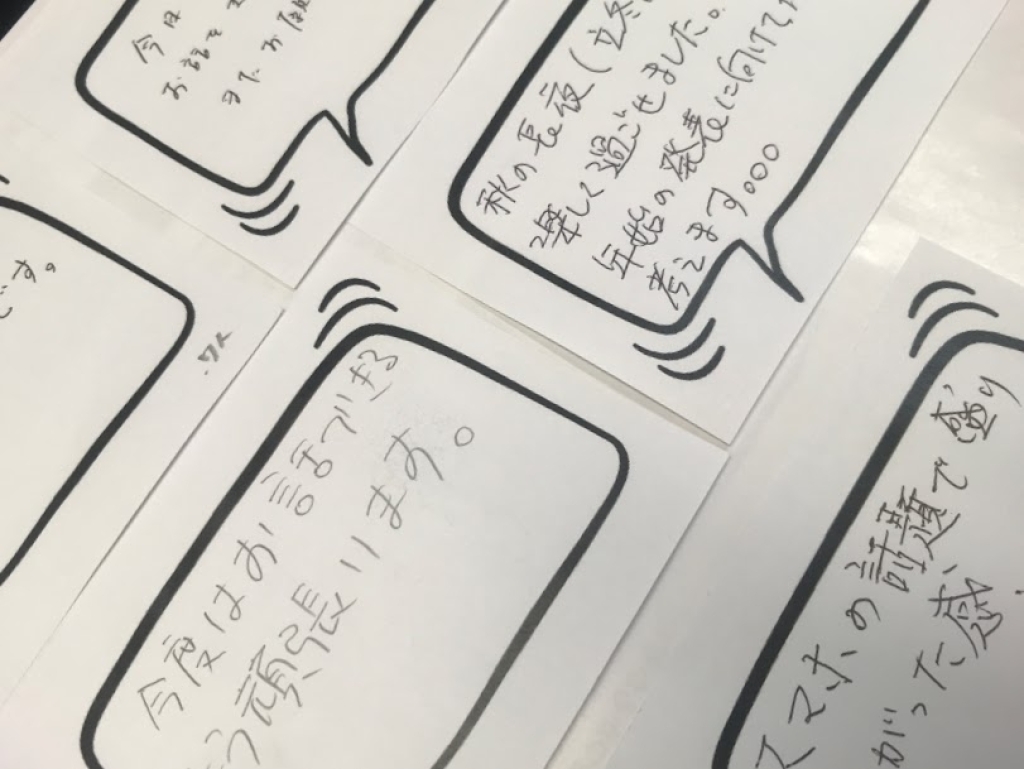 今日
お話を
また お願
秋の長夜(立冬
楽しく過ごせました。
年始の発表に向けて
考えます。。。
です。
今度はお話できる
う頑張ります。
スマホの話題で盛り
がった感